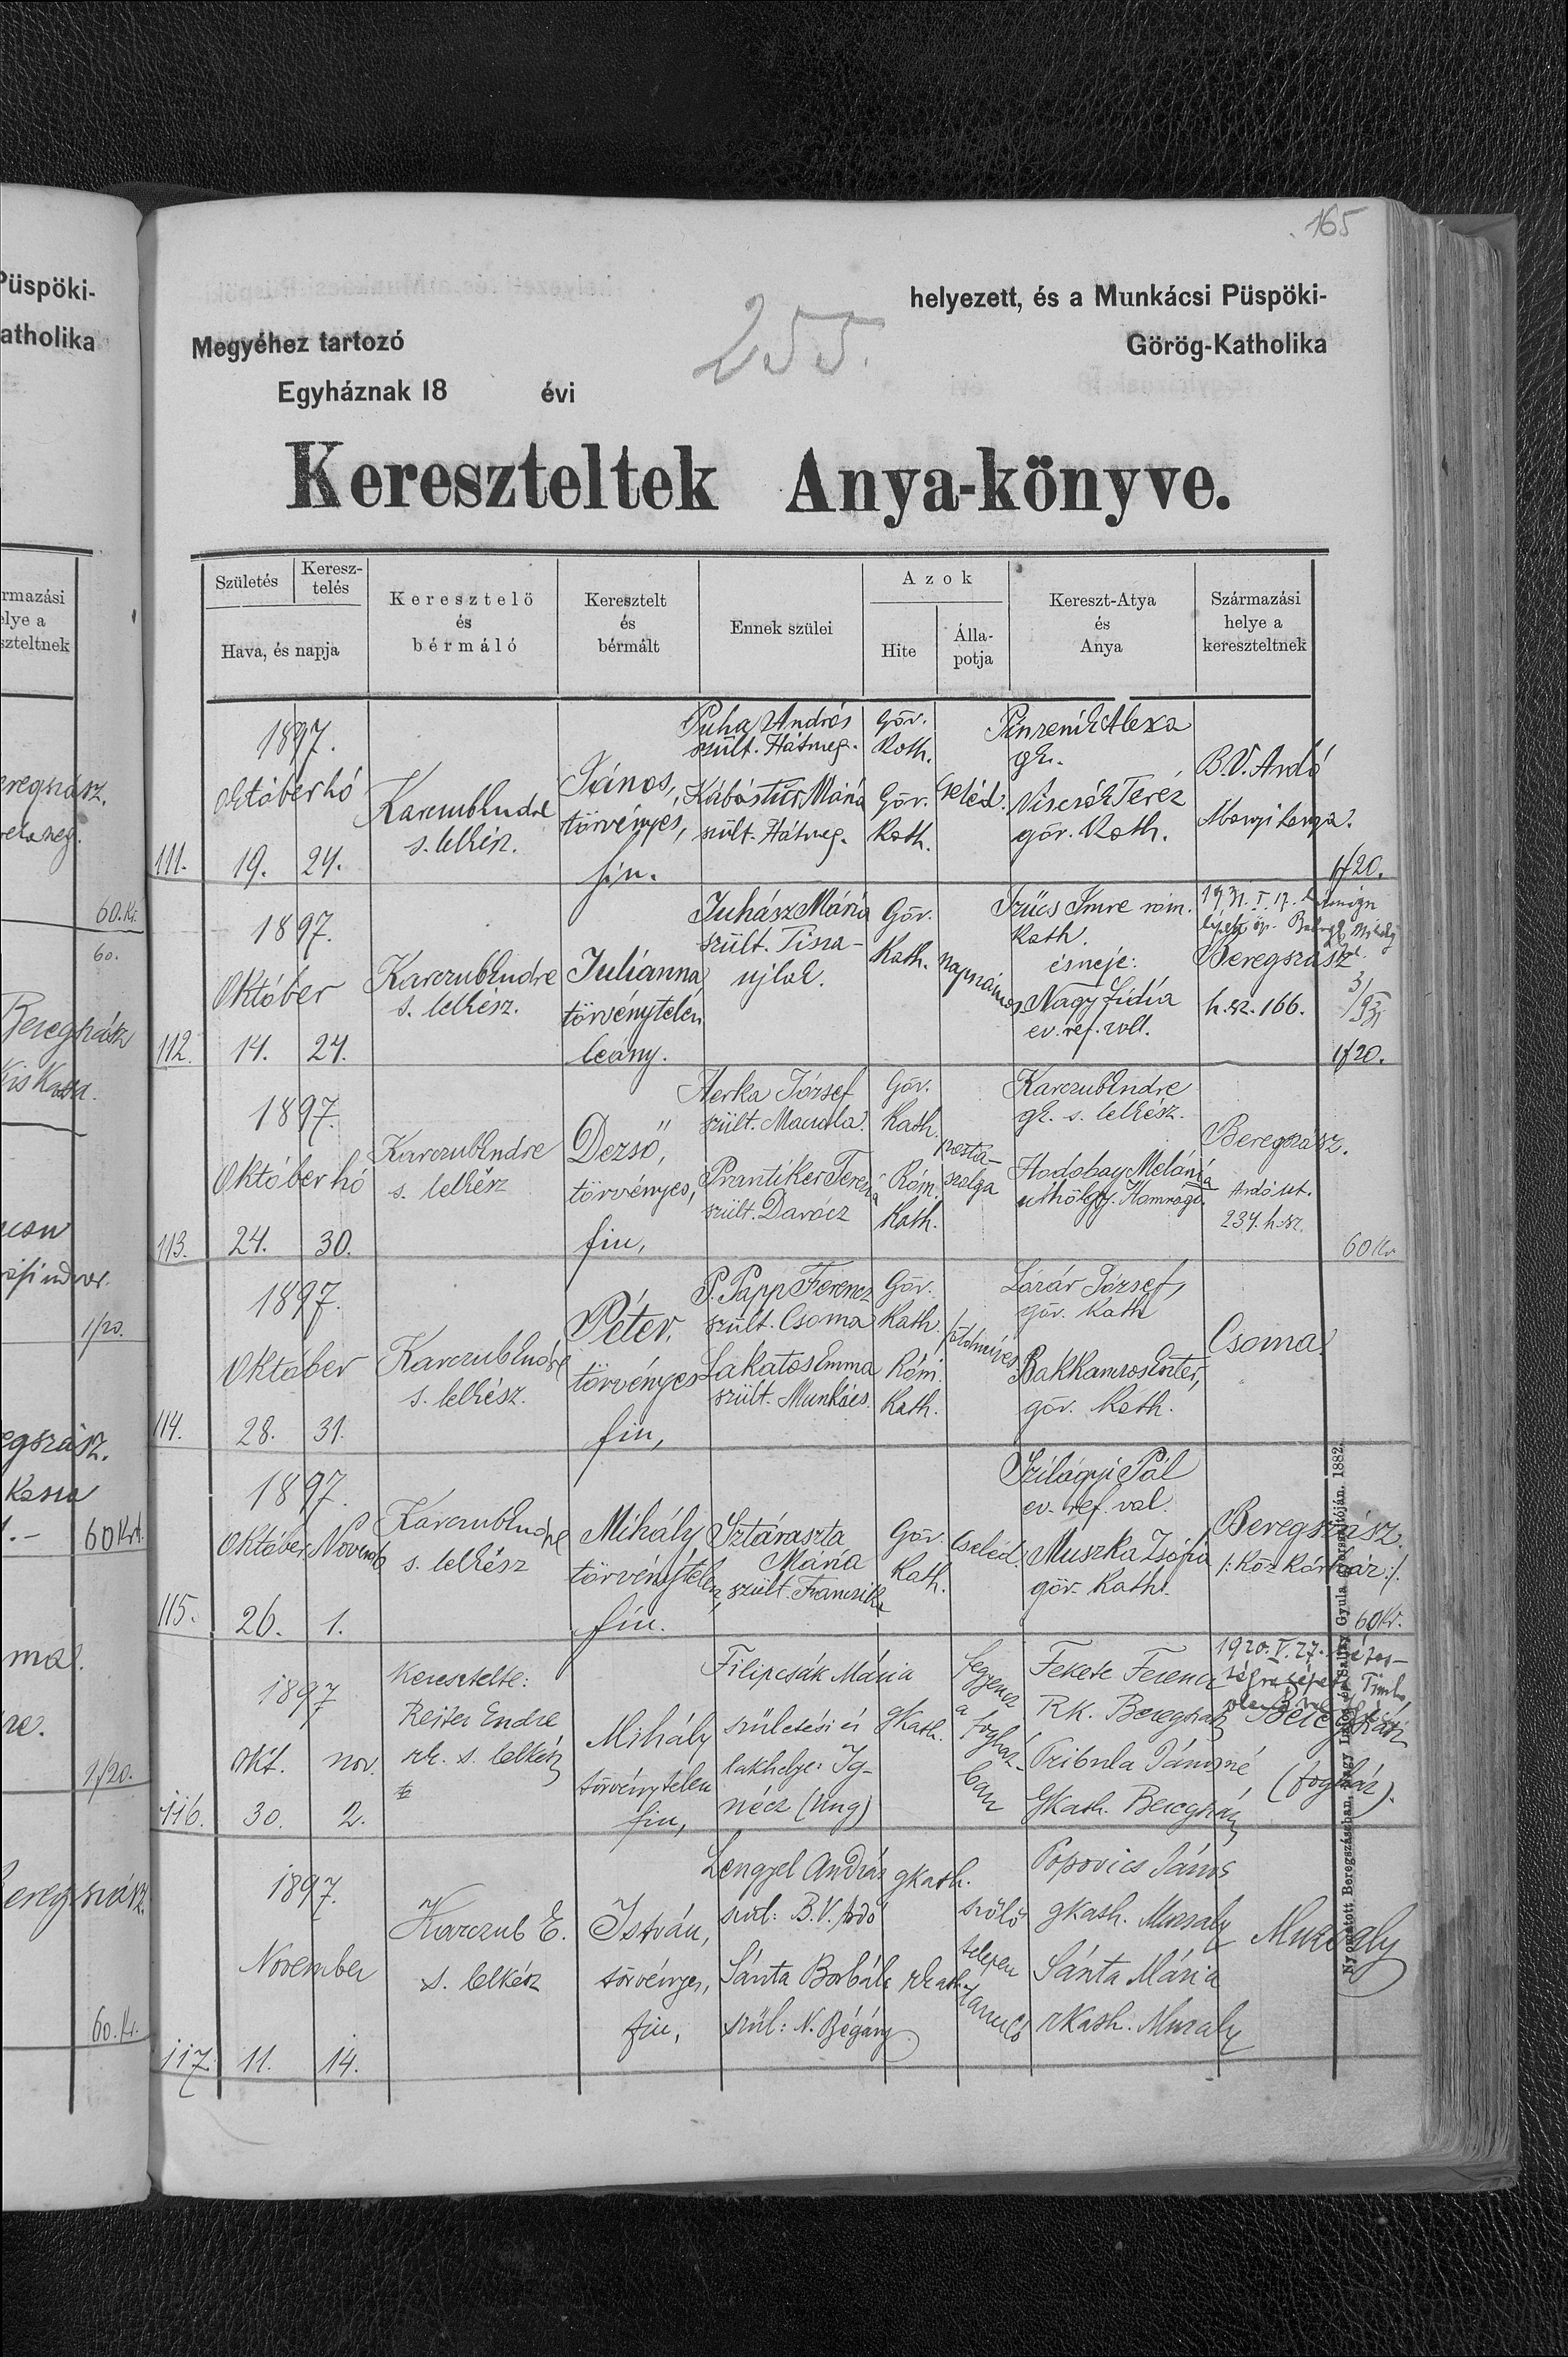 165
helyezett, és a Munkácsi Püspöki-
Megyéhez tartozó
255.
Görög-Katholika
Egyháznak 18 évi
Kereszteltek Anya-könyve.
Születés
Keresz-
telés
Hava, és napja
Keresztelő
és
bérmáló
Keresztelt
és
bérmált
Ennek szülei
Azok
Hite
Álla-
potja
Kereszt-Atya
és
Anya
Származási
helye a
kereszteltnek
111.
1897.
Október hó
19. 24.
Karczub Endre
s. lelkész.
János,
törvényes,
fiu.
Puha András
szült. Hátmeg.
Kábástur Mária
szült. Hátmeg.
Gör.
Kath.
Gör.
Kath.
Cseléd.
Pinzenik Alexa
gk.
Viscsák Teréz
gör. Kath.
B.V. Ardó
1f20.
112.
1897.
Október
14. 24.
Karczub Endre
s. lelkész.
Juliánna
törvénytelen
leány.
Juhász Mária
szült. Tisza-
ujlak.
Gör.
Kath.
napszámos
Szücs Imre róm.
Kath.
és neje:
Nagy Lidia
ev. ref. vall.
Beregszász
h.sz. 166.
1f20.
113.
1897.
Október hó
24. 30.
Karczub Endre
s. lelkész
Dezső,
törvényes,
fiu,
Aerka József
szült. Macsola.
Prantiker Terézia
szült. Darócz
Gör.
Kath.
Róm.
Kath.
posta-
szolga
Karczub Endre
gk. s. lelkész.
Hodobay Meláni
Beregszász.
Ardó ut.
234. h.sz.
60 Kr
114.
1897.
Október
28. 31.
Karczub Endre
s. lelkész.
Péter,
törvényes
fiu,
P. Papp Ferencz
szült. Csoma
Lakatos Emma
szült. Munkács.
Gör.
Kath.
Róm.
Kath.
földmives.
Lázár József,
gör. Kath
gör. Kath.
Csoma.
115.
1897.
Október Novemb
26. 1.
Karczub Endre
s. lelkész
Mihály
törvénytelen,
fiu.
Sztáraszta
Mária
szült.
Gör.
Kath.
Cseléd.
Szilágyi Pál
ev. ref. val.
Muszka Zsófia
gör. Kath.
Beregszász.
/: köz kórház :/.
60 Kr.
116.
1897
Okt. nov.
30. 2.
Keresztelte:
Reiter Endre
rk. s. lelkész
Mihály
törvénytelen
fiu,
Filipcsák Mária
születési és
lakhelye: Ig-
nécz (Ung)
gKath.
fegyencz
a
fogház-
ban
Fekete Ferencz
RK. Beregszász
Pribula Jánosné
GKath. Beregszász
1920. V. 27.
Beregszász
(fogház).
117.
1897.
November
11. 14.
Karczub E.
s. lelkész
István,
törvényes,
fiu,
Lengyel András
szül: B.V. Ardó
Sánta Borbála
szül: N. Bégány
gkath.
rkath.
szőlő
telepen
Popovics János
gkath. Muzsaly
Sánta Mária
rkath. Muzsaly
Muzsaly
Püspöki-
atholika
rmazási
elye a
szteltnek
eregszász.
60.Kr.
60.
Beregszász
1f20.
egszász.
60 Krt.
1f20.
Beregszász.
60.Kr.